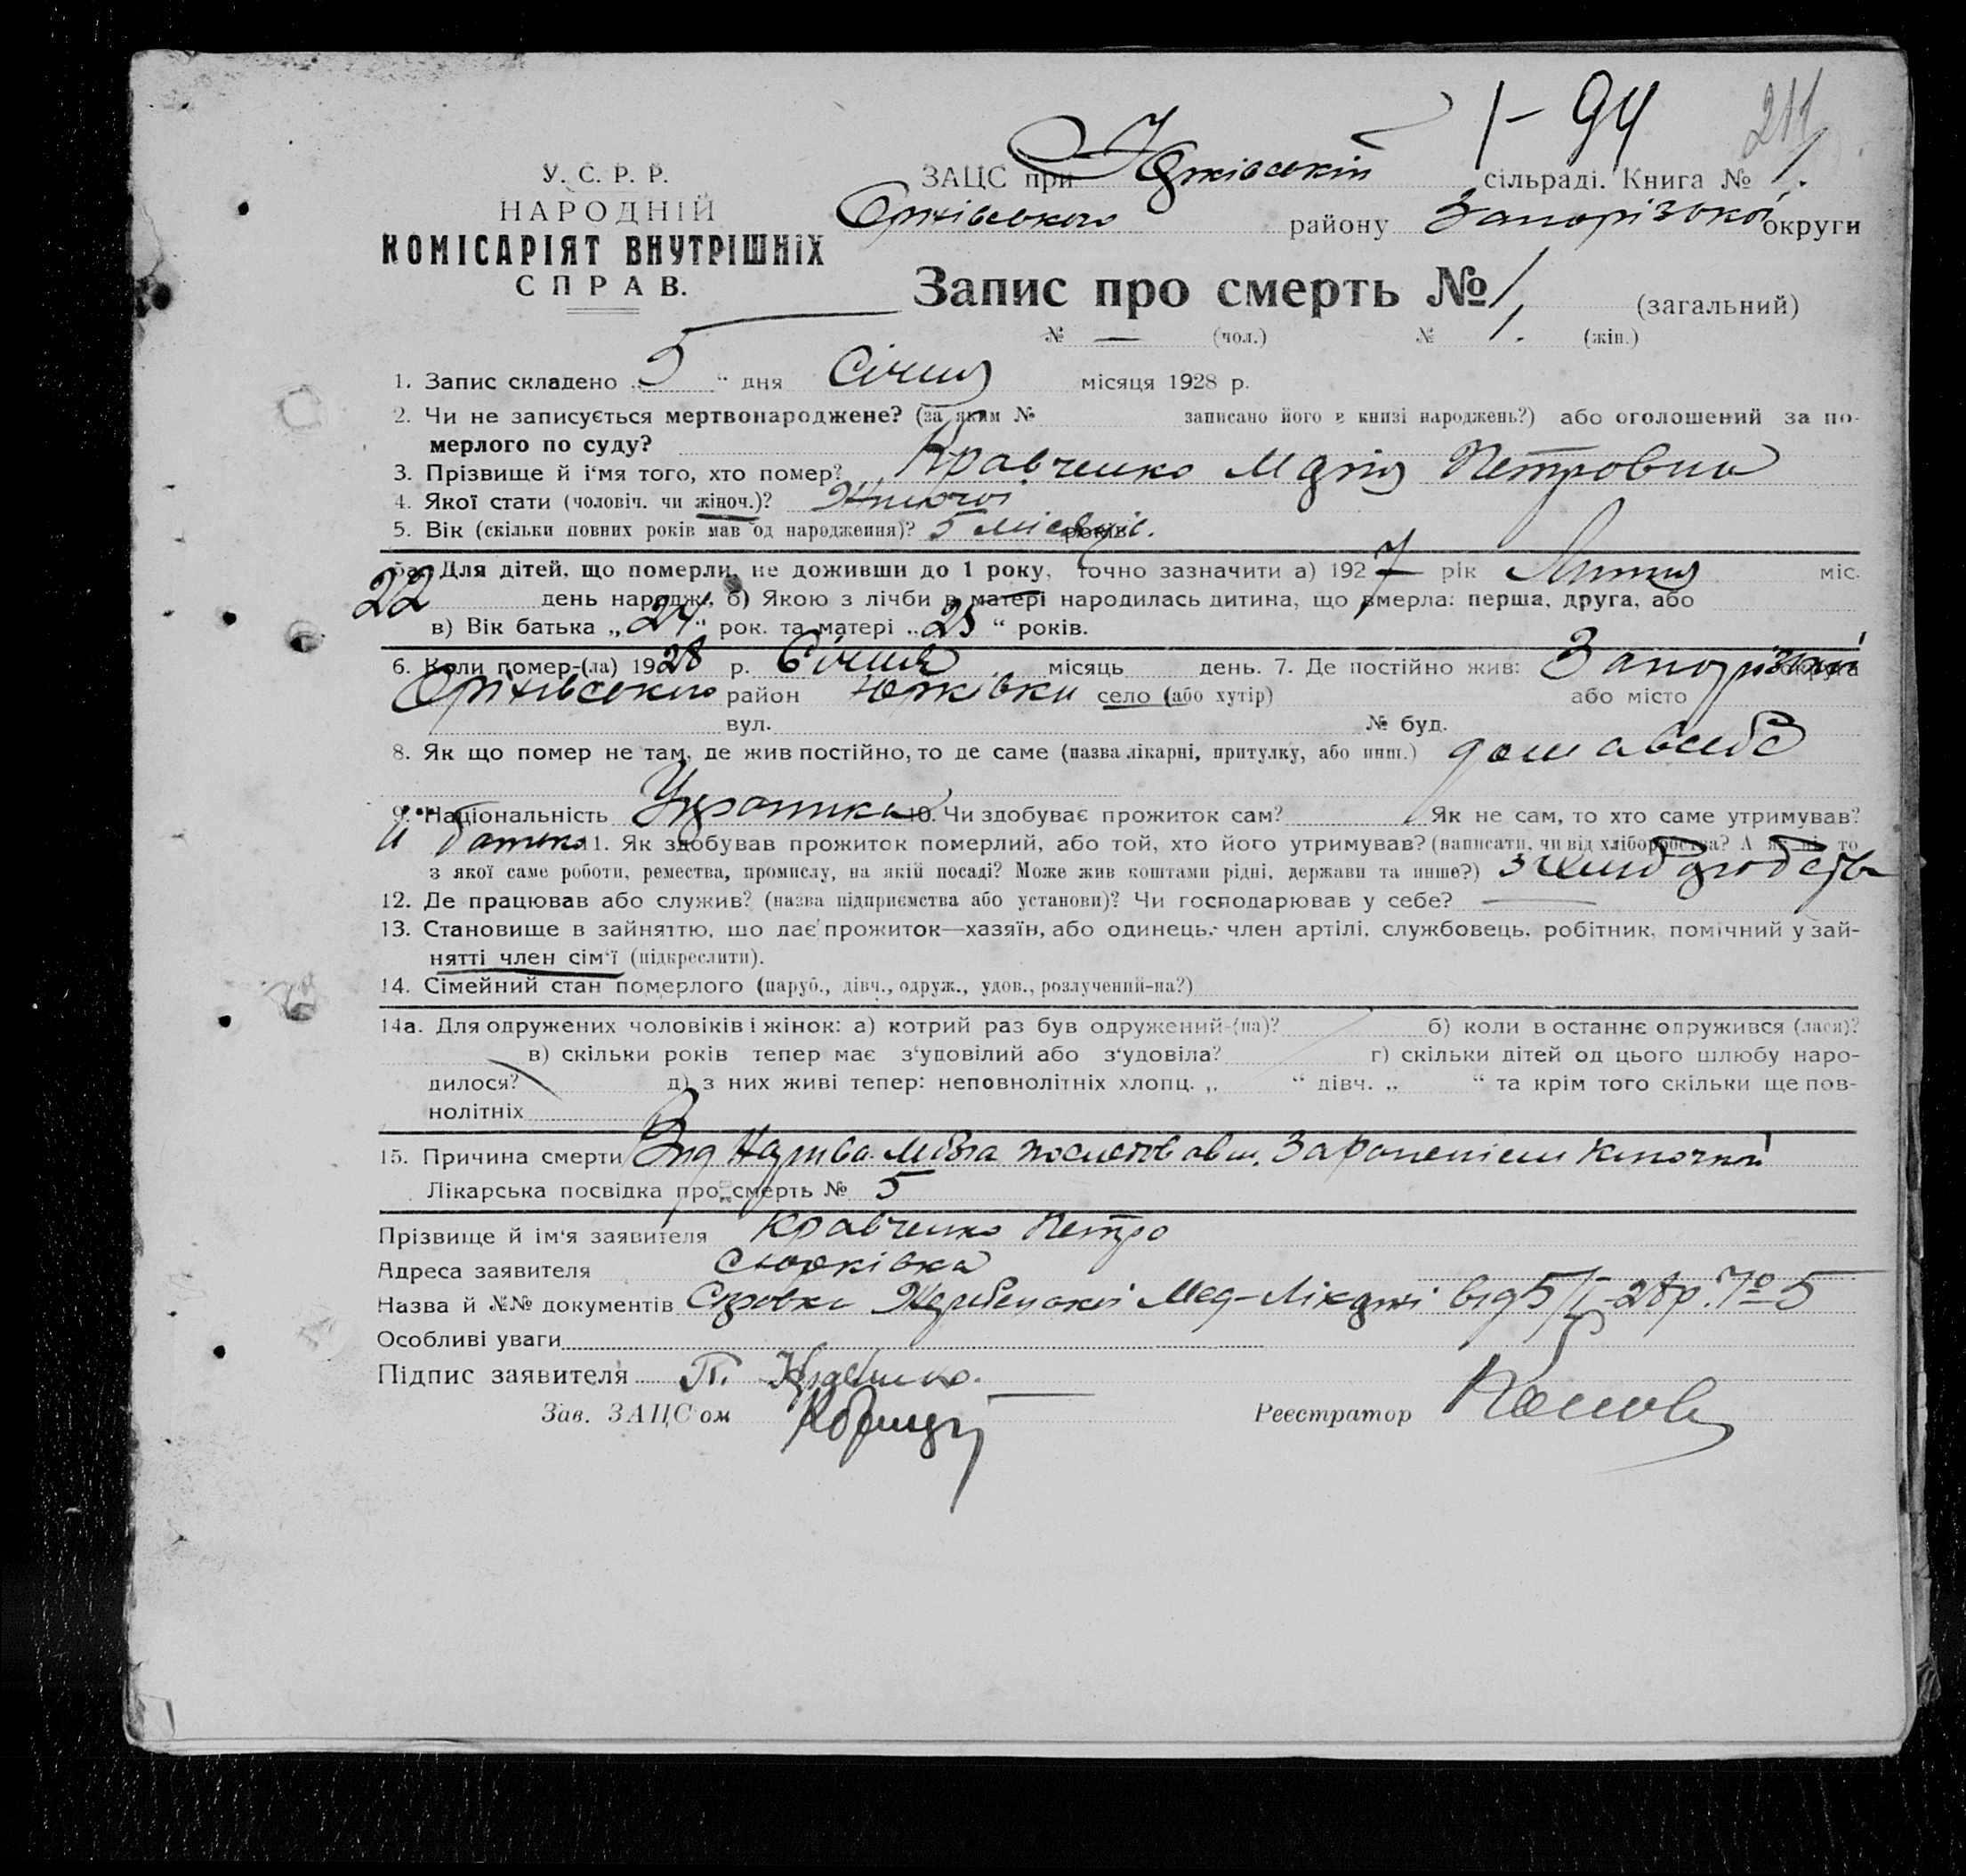 1-94
211
У. С. Р. Р.
НАРОДНІЙ
КОМІСАРІЯТ ВНУТРІШНІХ
СПРАВ.
ЗАЦС при Юрківській сільраді. Книга № 1.
Оріхівського району Запорізької округи
Запис про смерть № 1. (загальний)
№ — (чол.) № 1. (жін.)
1. Запис складено „ 5 “ дня Січня місяця 1928 р.
2. Чи не записується мертвонароджене? (за яким № записано його в книзі народжень?) або оголошений за по-
мерлого по суду?
3. Прізвище й і‘мя того, хто помер? Кравченко Марія Петровна
4. Якої стати (чоловіч. чи жіноч.)? Жіночої
5. Вік (скільки повних років мав од народження)? 5 місяців. років
5а. Для дітей, що померли, не доживши до 1 року, точно зазначити а) 1927 рік Липня міс.
22 день народж., б) Якою з лічби в матері народилась дитина, що вмерла: перша, друга, або
в) Вік батька „ 24 “ рок. та матері „ 25 “ років.
6. Коли помер-(ла) 1928 р. Січня місяць день. 7. Де постійно жив: Запорізької округа
Оріхівського район Юрківки село (або хутір) або місто
вул. № буд.
8. Як що помер не там, де жив постійно, то де саме (назва лікарні, притулку, або инш.)
9. Національність Українка 10. Чи здобуває прожиток сам? Як не сам, то хто саме утримував?
батько 11. Як здобував прожиток померлий, або той, хто його утримував? (написати, чи від хліборобства? А як ні, то
з якої саме роботи, ремества, промислу, на якій посаді? Може жив коштами рідні, держави та инше?) з хліборобства
12. Де працював або служив? (назва підприємства або установи)? Чи господарював у себе? —
13. Становище в зайняттю, що дає прожиток—хазяїн, або одинець, член артілі, службовець, робітник, помічний у зай-
нятті член сім‘ї (підкреслити).
14. Сімейний стан померлого (паруб., дівч., одруж., удов., розлучений-на?)
14а. Для одружених чоловіків і жінок: а) котрий раз був одружений-(на)? б) коли востаннє одружився (лася)?
в) скільки років тепер має з‘удовілий або з‘удовіла? г) скільки дітей од цього шлюбу наро-
дилося? д) з них живі тепер: неповнолітніх хлопц. „ “ дівч. „ “ та крім того скільки ще пов-
нолітніх
15. Причина смерти Від
Лікарська посвідка про смерть № 5
Прізвище й ім‘я заявителя Кравченко Петро
Адреса заявителя с Юрківка
Назва й №№ документів Справка Жеребецької Мед-Лікарні від 5/I-28р. № 5
Особливі уваги
Підпис заявителя П. Кравченко.
Зав. ЗАЦС‘ом Реєстратор